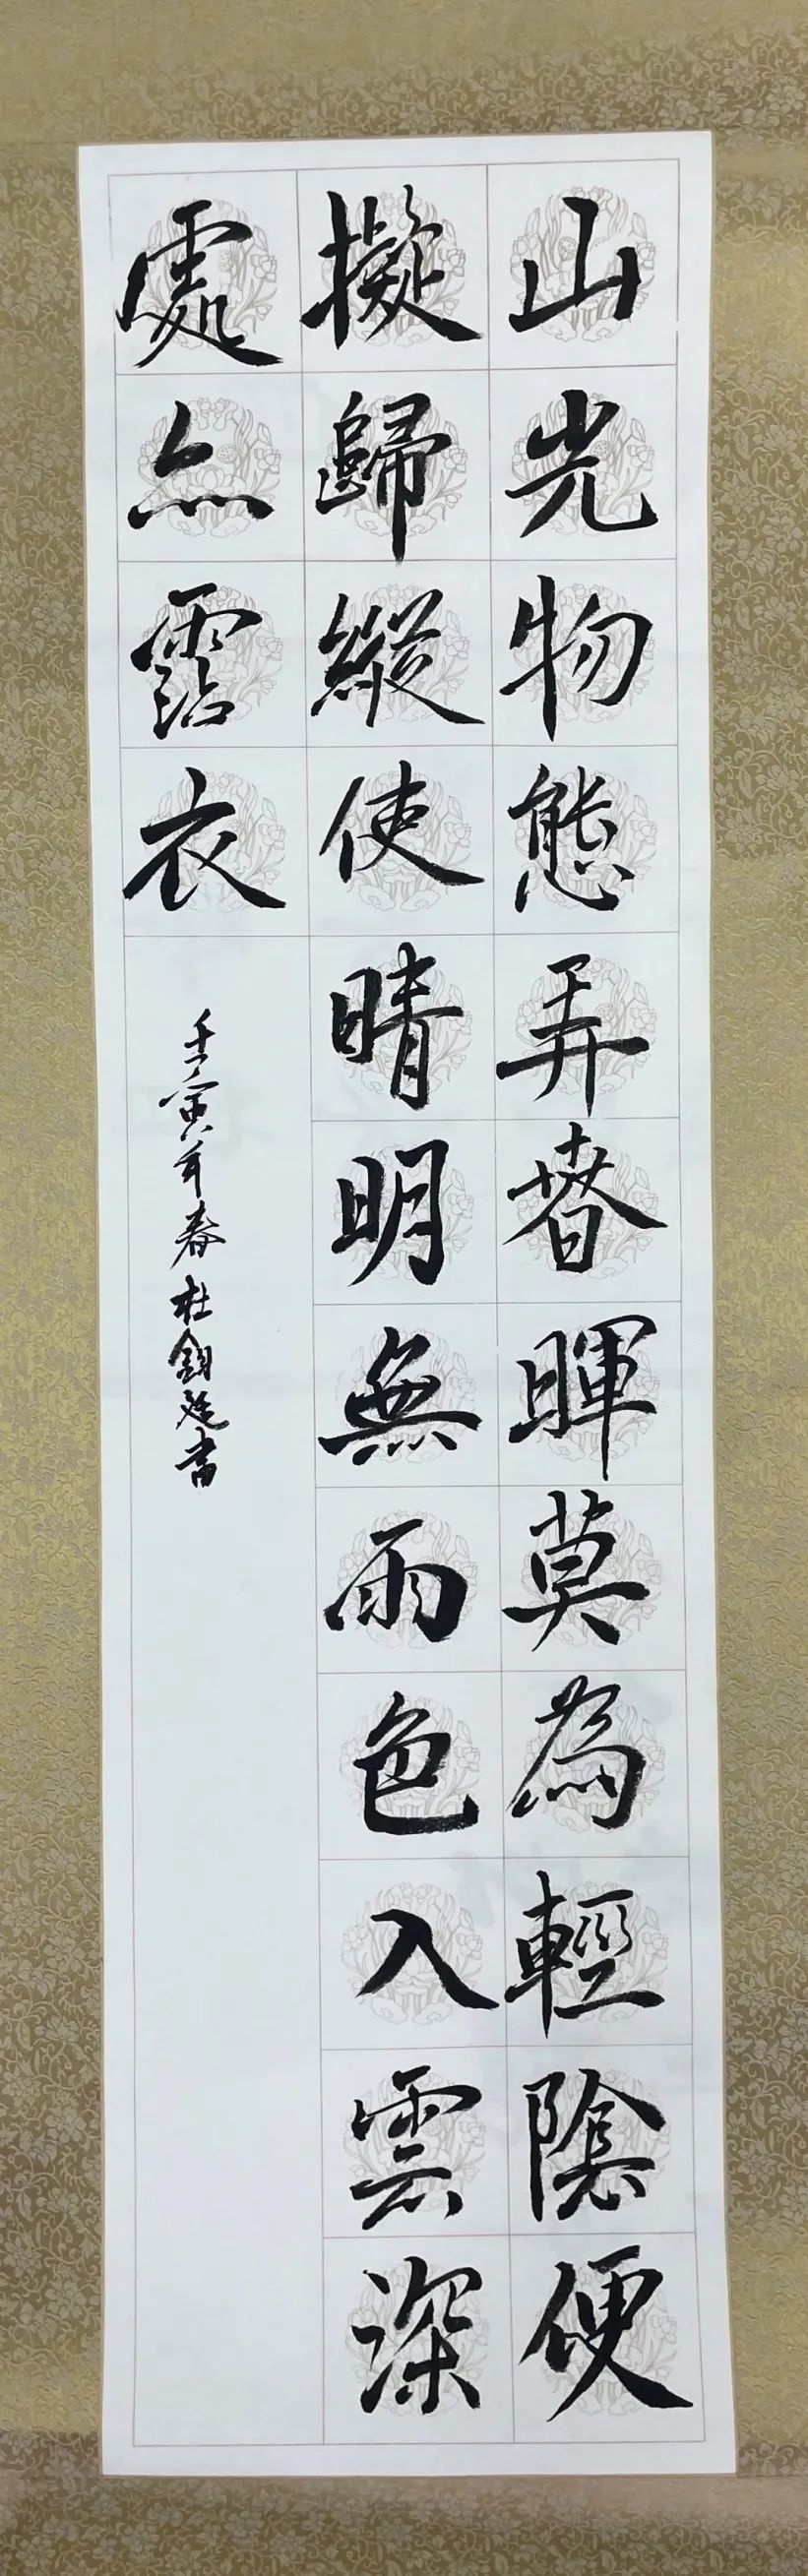 山光物態弄春暉莫為輕陰便
擬歸縱使晴明無雨色入雲深
處亦霑衣
壬寅年春杜鈞廷書